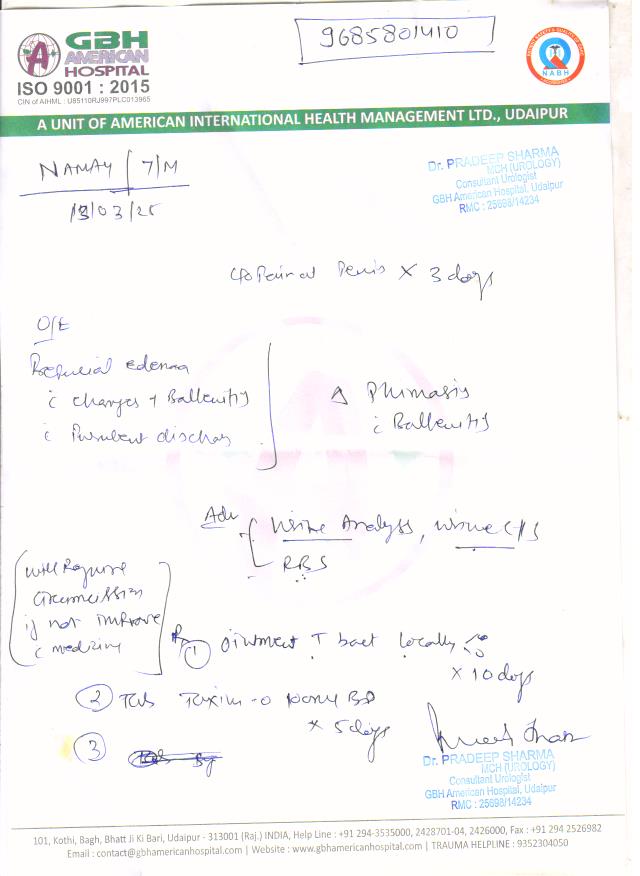 9685801410
GBH
AMERICAN
HOSPITAL
ISO 9001 : 2015
CIN of AIHML : U85110RJ997PLC013965
NABH
A UNIT OF AMERICAN INTERNATIONAL HEALTH MANAGEMENT LTD., UDAIPUR
NAMAY | 7/M
13/03/25
Dr. PRADEEP SHARMA
MCH (UROLOGY)
Consultant Urologist
GBH American Hospital, Udaipur
RMC : 25698/14234
c/o Pain at Penis × 3 days
O/E
Prepucial edema
c changes + Ballenitis
c Purulent dischar
Δ Phimosis
c Ballenitis
Adv
Urine Analyss, urine c/s
RBS
Will Require
Circumcission
if not improve
c medizine
Rx
① Ointment T bact locally
× 10 days
② Tab Taxim-O 100mg BD
× 5 days
③
Dr. PRADEEP SHARMA
MCH (UROLOGY)
Consultant Urologist
GBH American Hospital, Udaipur
RMC : 25698/14234
101, Kothi, Bagh, Bhatt Ji Ki Bari, Udaipur - 313001 (Raj.) INDIA, Help Line : +91 294-3535000, 2428701-04, 2426000, Fax : +91 294 2526982
Email : contact@gbhamericanhospital.com | Website : www.gbhamericanhospital.com | TRAUMA HELPLINE : 9352304050